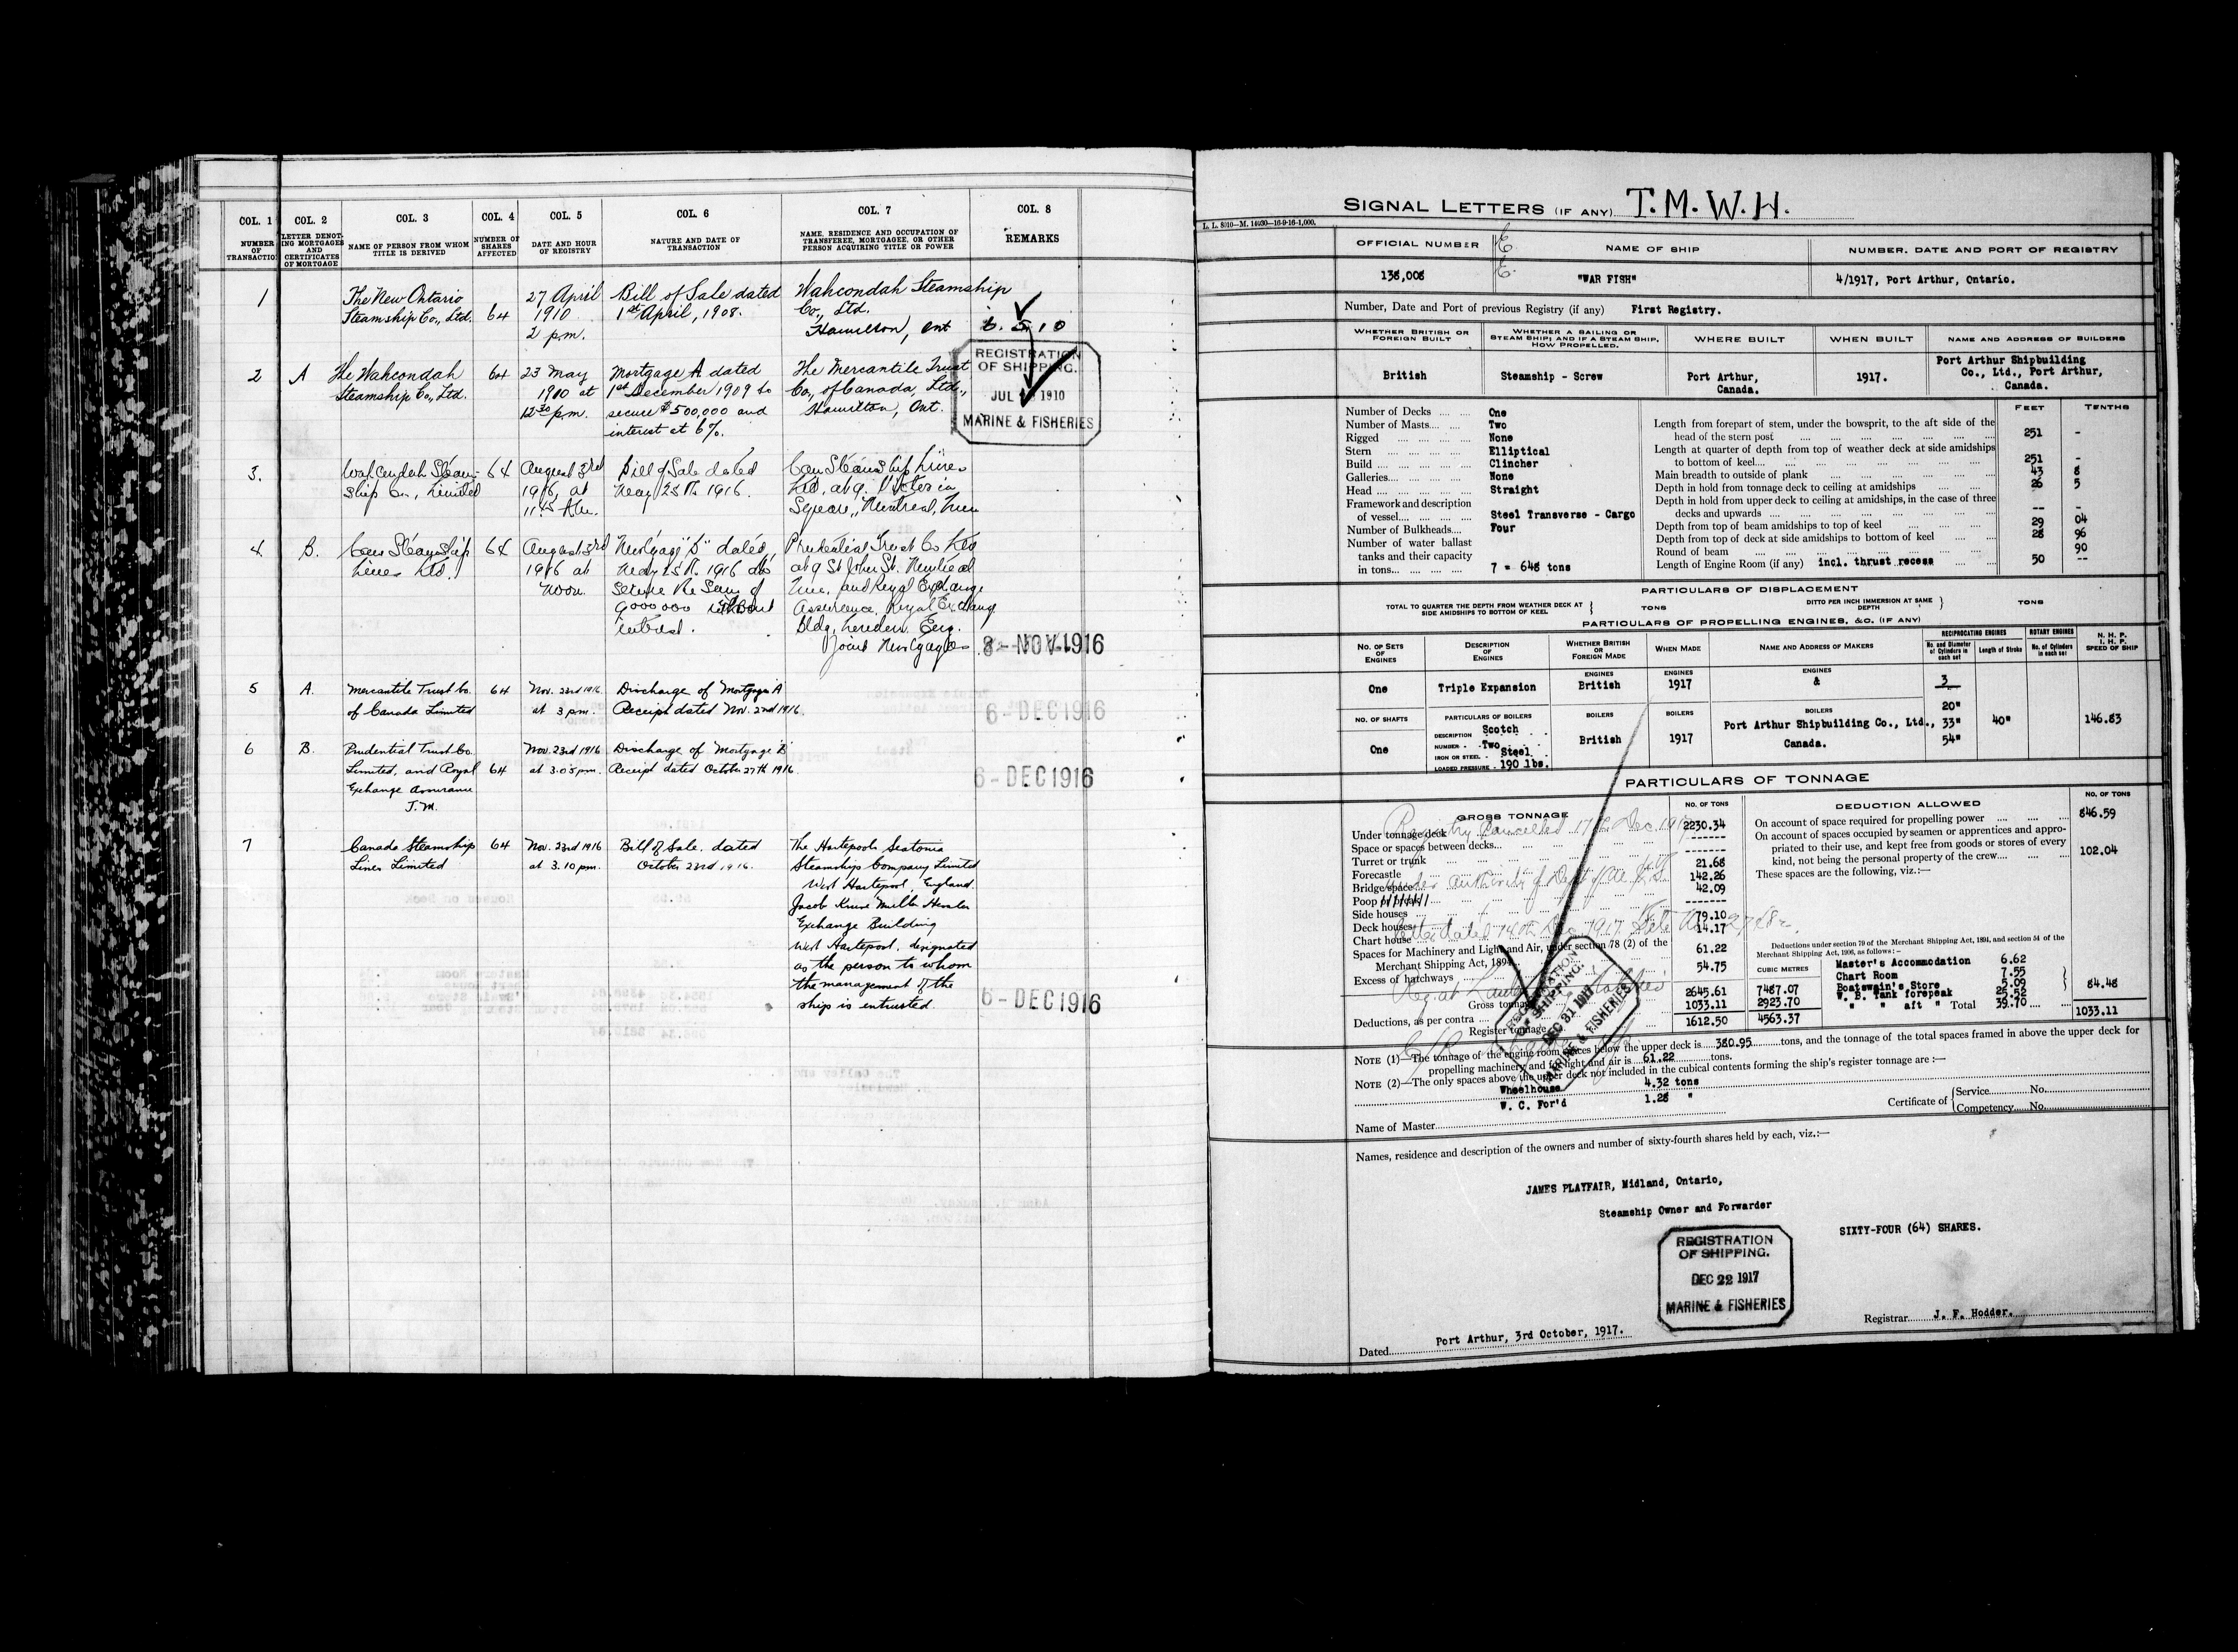 COL. 1 COL. 2 COL. 3 COL. 4 COL. 5 COL. 6 COL. 7 COL. 8
NUMBER OF TRANSACTION
LETTER DENOTING MORTGAGES AND CERTIFICATES OF MORTGAGE
NAME OF PERSON FROM WHOM TITLE IS DERIVED
NUMBER OF SHARES AFFECTED
DATE AND HOUR OF REGISTRY
NATURE AND DATE OF TRANSACTION
NAME, RESIDENCE AND OCCUPATION OF TRANSFEREE, MORTGAGEE, OR OTHER PERSON ACQUIRING TITLE OR POWER
REMARKS
1
The New Ontario
Steamship Co., Ltd.
64
27 April
1910
2 p.m.
Bill of Sale dated
1st April, 1908.
Wahcondah Steamship
Co., Ltd.
Hamilton, Ont
6. 5. 10
2
A
The Wahcondah
Steamship Co., Ltd.
64
23 May
1910 at
12:30 p.m.
Mortgage A dated
1st December 1909 to
secure $500,000 and
interest at 6%.
The Mercantile Trust
Co., of Canada, Ltd.,
Hamilton, Ont.
REGISTRATION
OF SHIPPING.
JUL 1910
MARINE & FISHERIES
3.
Wahcondah Steam-
ship Co., Limited
64
August 3rd
1916, at
11.45 A.m.
Bill of Sale dated
May 25th 1916.
Can Steamship Lines
Ltd, at 9. Victoria
Square, Montreal, Que
4.
B.
Can Steamship
Lines Ltd.
64
August 3rd
1916 at
noon.
Mortgage "B" dated
May 25th 1916 to
Secure the Sum of
9000 000 without
interest.
Prudential Trust Co Ltd
at 9 St John St. Montreal
Que. and Royal Exchange
Assurance, Royal Exchange
Bldg, London. Eng.
Joint Mortgagees
8 - NOV 1916
5
A.
Mercantile Trust Co.
of Canada Limited
64
Nov. 23rd 1916
at 3 pm.
Discharge of Mortgage "A"
Receipt dated Nov. 2nd 1916.
6 - DEC 1916
6
B.
Prudential Trust Co.
Limited, and Royal
Exchange Assurance
J.M.
64
Nov. 23rd 1916
at 3.05 pm.
Discharge of Mortgage "B"
Receipt dated October 27th 1916.
6 - DEC 1916
7
Canada Steamship
Lines Limited
64
Nov. 23rd 1916
at 3.10 pm.
Bill of Sale, dated
October 23rd 1916.
The Hartlepools Seatonia
Steamship Company Limited
West Hartlepool, England.
Jacob Knud Muller Hessler
Exchange Building
West Hartlepool, designated
as the person to whom
the management of the
ship is entrusted.
6 - DEC 1916
SIGNAL LETTERS (IF ANY) T.M.W.H.
L. L. 8010—M. 14930—16-9-16-1,000.
OFFICIAL NUMBER
NAME OF SHIP
NUMBER, DATE AND PORT OF REGISTRY
138,008
"WAR FISH"
4/1917, Port Arthur, Ontario.
Number, Date and Port of previous Registry (if any) First Registry.
WHETHER BRITISH OR FOREIGN BUILT
WHETHER A SAILING OR STEAM SHIP; AND IF A STEAM SHIP, HOW PROPELLED.
WHERE BUILT
WHEN BUILT
NAME AND ADDRESS OF BUILDERS
British
Steamship - Screw
Port Arthur,
Canada.
1917.
Port Arthur Shipbuilding
Co., Ltd., Port Arthur,
Canada.
FEET TENTHS
Number of Decks One
Number of Masts Two
Rigged None
Stern Elliptical
Build Clincher
Galleries None
Head Straight
Framework and description
of vessel Steel Transverse - Cargo
Number of Bulkheads Four
Number of water ballast
tanks and their capacity
in tons 7 = 648 tons
Length from forepart of stem, under the bowsprit, to the aft side of the
head of the stern post 251 -
Length at quarter of depth from top of weather deck at side amidships
to bottom of keel 251 -
Main breadth to outside of plank 43 8
Depth in hold from tonnage deck to ceiling at amidships 26 5
Depth in hold from upper deck to ceiling at amidships, in the case of three
decks and upwards -- -
Depth from top of beam amidships to top of keel 29 04
Depth from top of deck at side amidships to bottom of keel 28 96
Round of beam 90
Length of Engine Room (if any) incl. thrust recess 50 --
PARTICULARS OF DISPLACEMENT
TOTAL TO QUARTER THE DEPTH FROM WEATHER DECK AT SIDE AMIDSHIPS TO BOTTOM OF KEEL } TONS
DITTO PER INCH IMMERSION AT SAME DEPTH } TONS
PARTICULARS OF PROPELLING ENGINES, &C. (IF ANY)
NO. OF SETS OF ENGINES
DESCRIPTION OF ENGINES
WHETHER BRITISH OR FOREIGN MADE
WHEN MADE
NAME AND ADDRESS OF MAKERS
RECIPROCATING ENGINES
No. and Diameter of Cylinders in each set
Length of Stroke
ROTARY ENGINES
No. of Cylinders in each set
N. H. P.
I. H. P.
SPEED OF SHIP
One
Triple Expansion
ENGINES
British
ENGINES
1917
ENGINES
&
3
20"
33"
54"
40"
146.83
NO. OF SHAFTS
One
PARTICULARS OF BOILERS
DESCRIPTION Scotch
NUMBER Two
IRON OR STEEL Steel
LOADED PRESSURE 190 lbs.
BOILERS
British
BOILERS
1917
BOILERS
Port Arthur Shipbuilding Co., Ltd.,
Canada.
PARTICULARS OF TONNAGE
GROSS TONNAGE
NO. OF TONS
Under tonnage deck 2230.34
Space or spaces between decks -------
Turret or trunk -------
Forecastle 21.68
Bridge space 142.26
Poop or break 42.09
Side houses -------
Deck houses 79.10
Chart house 14.17
Spaces for Machinery and Light and Air, under section 78 (2) of the
Merchant Shipping Act, 1894 61.22
Excess of hatchways 54.75
CUBIC METRES
Gross tonnage 2645.61 7487.07
Deductions, as per contra 1033.11 2923.70
Register tonnage 1612.50 4563.37
Registry Cancelled 17th Dec. 1917
under authority of Dept of
letter dated 14th Dec. 1917. File No.
Reg. at London
REGISTRATION
OF SHIPPING.
DEC 31 1917
MARINE & FISHERIES
DEDUCTION ALLOWED
NO. OF TONS
On account of space required for propelling power 846.59
On account of spaces occupied by seamen or apprentices and appro-
priated to their use, and kept free from goods or stores of every
kind, not being the personal property of the crew 102.04
These spaces are the following, viz.:—
Deductions under section 79 of the Merchant Shipping Act, 1894, and section 54 of the
Merchant Shipping Act, 1906, as follows:—
Master's Accommodation 6.62
Chart Room 7.55
Boatswain's Store 5.09
W. B. Tank forepeak 25.52
" " aft " Total 39.70
84.48
1033.11
NOTE (1)—The tonnage of the engine room spaces below the upper deck is 380.95 tons, and the tonnage of the total spaces framed in above the upper deck for
propelling machinery and for light and air is 61.22 tons.
NOTE (2)—The only spaces above the upper deck not included in the cubical contents forming the ship's register tonnage are :—
Wheelhouse 4.32 tons
W. C. For'd 1.28 "
Name of Master
Certificate of { Service No.
Competency No.
Names, residence and description of the owners and number of sixty-fourth shares held by each, viz.:—
JAMES PLAYFAIR, Midland, Ontario,
Steamship Owner and Forwarder
SIXTY-FOUR (64) SHARES.
REGISTRATION
OF SHIPPING.
DEC 22 1917
MARINE & FISHERIES
Registrar J. F. Hodder.
Dated Port Arthur, 3rd October, 1917.